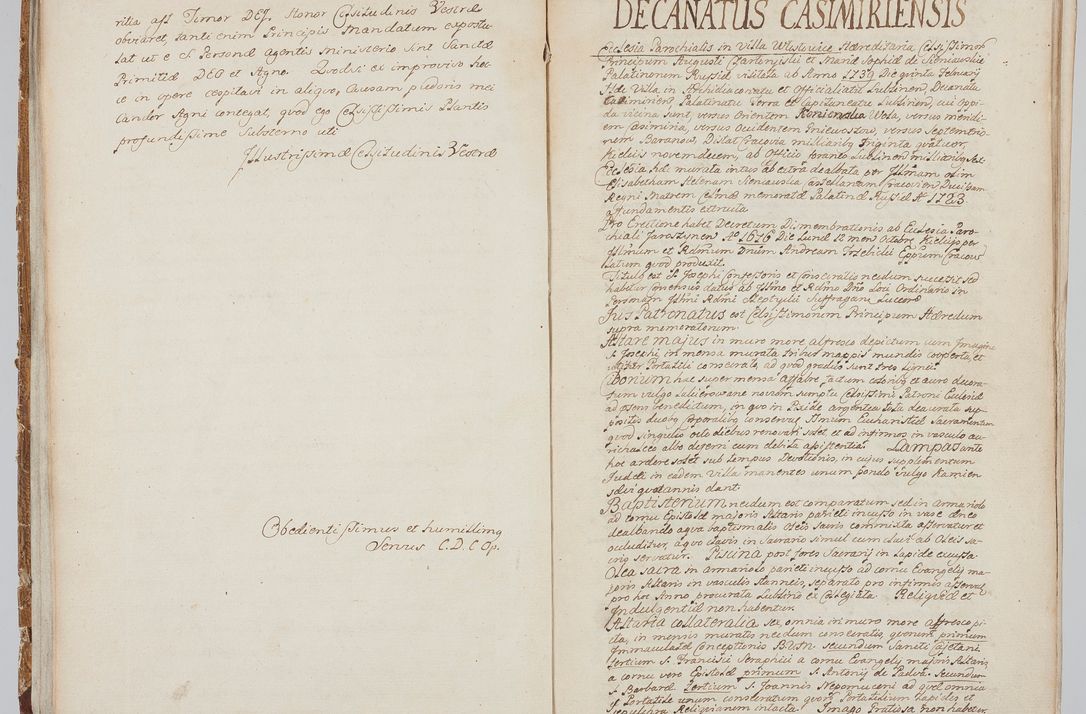 ritia ast Timor DEI, Honor Celsitudinis Vestræ
obviaret, tanti enim Principis Mandatum expostu
lat ut e S. Personæ agentis ministerio sint Sanctæ
Primitiæ DEO et Agno. Quodsi ex improviso hoc
ce in opere cespitavi in aliquo, Causam pudoris mei
Candor Agni contegat, quod ego Celsissimis Plantis
profundissime substerno uti
Illustrissimæ Celsitudinis Vestræ
Obedientissimus et humillimq
Servus C.D.C Op.
DECANATUS CASIMIRIENSIS
Ecclesia Parochialis in Villa Wlostowice Hæreditaria Celsissimor
Principum Augusti Czartoryiskii et Mariæ Sophiæ de Sieniawskie
Palatinorum Russiæ visitata ab Anno 1739 Die quinta Februarij
Hæc Villa in Archidiaconatu et Officialatu Lublinen, Decanatu
Casimirien, Palatinatu Terra et Capitaneatu Lublinen, cui oppi-
da vicina sunt, versus Orientem Konienskia Wola, versus meridi-
em Casimiria, versus Occidentem Gniewoszow, versus Septemtrio-
nem Baranow, Distat Cracovia milliaribq Triginta quatuor,
Kielciis novemdecem, ab Officio foraneo Lublinen milliaribq sex
Ecclesia hæc murata intus ab extra dealbata per Illmam olim
Elisabetham Helenam Sieniauska Castellanam Cracovien Ducissam
Regni Matrem Celsmæ memoratæ Palatinæ Russiæ Aº 1723
a fundamentis extructa
Pro Erectione habet Decretum Dismembrationis ab Ecclesia Paro-
chiali Jaroszynen Aº 1676 Die Lunæ 12 men Octobr Kielciis per
Illmum et Rdmum Dnum Andream Trzebicki Eppum Cracov
latum quod produxit.
Titulus est S. Josephi Confessoris et Consecratio necdum successit sed
habetur Consensus datus ab Illmo et Rdmo Dño Loci Ordinario in
Personam Illmi Rdmi Ateptycki Suffraganei Luceor
Jus Patronatus est Celsissimorum Principum Hæredum
supra memoratorum.
Altare majus in muro more alfresco depictum cum Imagine
S. Josephi, in mensa murata tribus mappis mundis cooperta, et
utitur Portatili consecrato, ad quod gradus sunt tres lignei.
Ciborium hac super mensa affabre factum coloribq et auro decora-
tum vulgo Szlifirowane noviter sumptu Celsissimi Patroni Ecclesiæ
ad præsens benedictum, in quo in Pixide argentea tota deaurata sup-
positis duobq Corporalibq conservat Ssmum Eucharistiæ Sacramentum
quod singulis octo diebus renovari solet et ad infirmos in vasculo au-
richalceo albo deferri cum debita assistentia. Lampas ante
hoc ardere solet sub tempus Devotionis, in cujus supplementum
Judæi in eadem Villa manentes unum pondo vulgo Kamien
sebi quotannis dant.
Baptisterium necdum est comparatum sed in armariolo
ad cornu Epistolæ majoris Altaris parieti incusso in vase æneo
dealbando aqva baptismalis oleis sacris commixta asservatur et
occluditur, a quo clavis in Sacrario simul cum clavi ab Oleis sa-
cris servatur. Piscina post fores Sacrarij in lapide excussa
Olea sacra in armariolo parieti incusso ad cornu Evangelij ma-
joris Altaris in vasculis stanneis, separato pro infirmis asservat
pro hoc Anno procurata Lublino ex Collegiata Religviæ et
Indulgentiæ non habentur.
Altaria collateralia sex, omnia in muro more alfresco pi-
cta, in mensis muratis necdum consecratis, quorum primum
Immaculatæ Conceptionis BVMr. secundum Sancti Cajetani,
Tertium S. Francisci Seraphici a cornu Evangelij majoris Altaris,
a cornu vero Epistolæ primum S. Antonij de Padua, Secundum
S. Barbaræ Tertium S. Joannis Nepomuceni ad quæ omnia
7 Portatilia unum consecratum quorum Portatilium Lapides et
sepulchra Religviarum intacta. Imago Gratiosa non habetur.